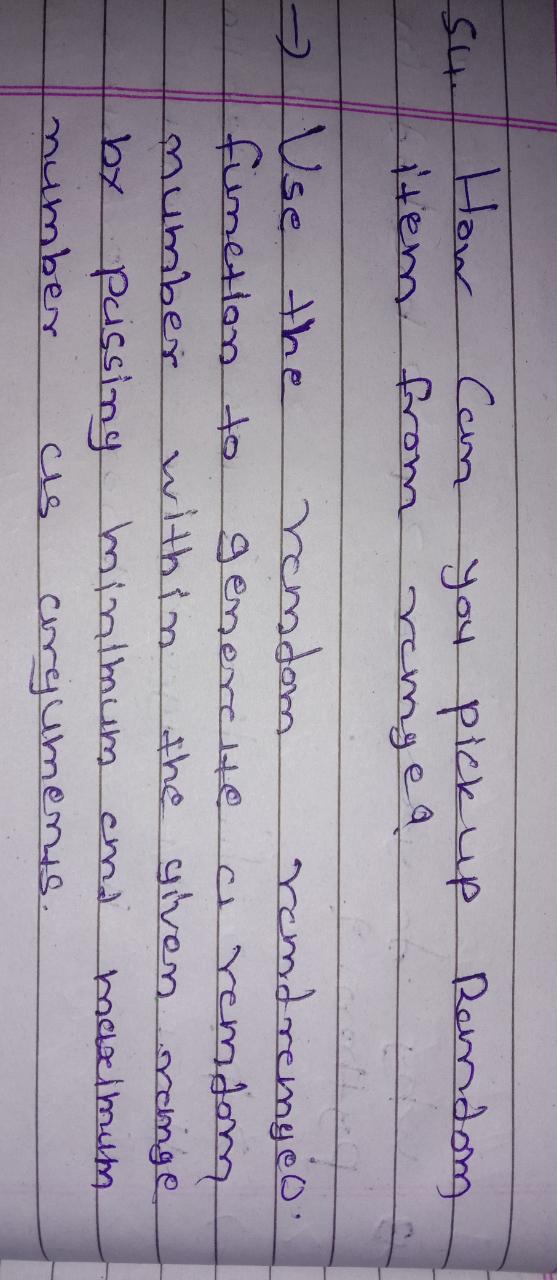 54. How Can you pickup Random
item from range?
→ Use the random randrange().
function to generate a random
number within the given range
by passing minimum and maximum
number as arguments.